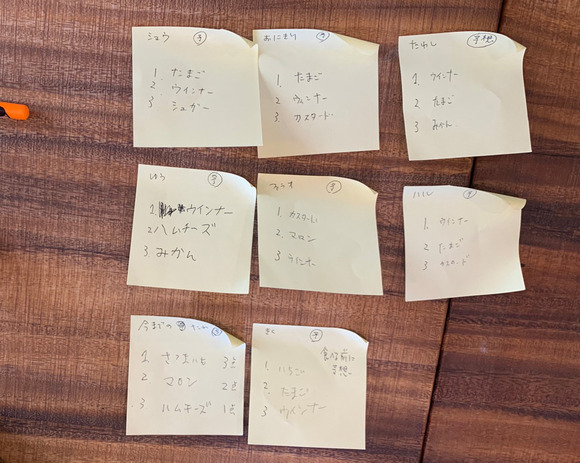 シュウ 予
1. たまご
2. ウインナー
3 シュガー
おにぎり 予
1. たまご
2 ウィンナー
3. カスタード
たわし 予想
1. ウインナー
2 たまご
3 みかん
ゆう 予
1. ウインナー
2 ハムチーズ
3. みかん
予
1. カスタード
2. マロン
3. ウインナー
予
1. ウインナー
2 たまご
3 カスタード
今までの
1 さつまいも 3点
2 マロン 2点
3 ハムチーズ 1点
きく 予
食べる前に
予想
1. いちご
2 たまご
3 ウインナー